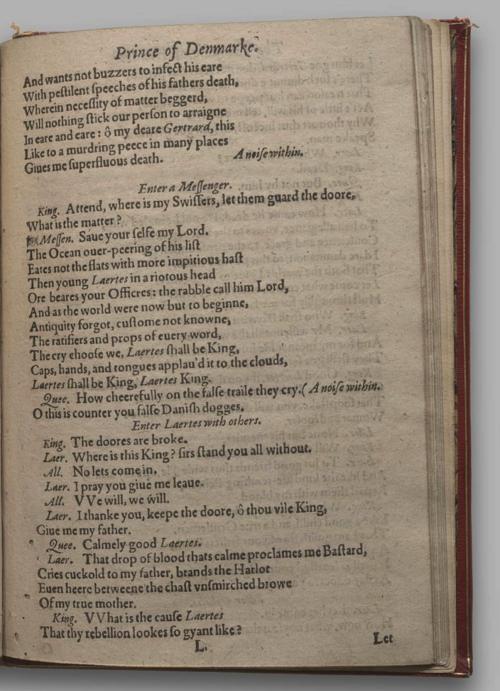 Prince of Denmarke.
And wants not buzzers to infect his eare
With pestilent speeches of his fathers death,
Wherein necessity of matter beggerd,
Will nothing stick our person to arraigne
In eare and eare : ô my deare Gertrard, this
Like to a murdring peece in many places
Giues me superfluous death. A noise within.
Enter a Messenger.
King. Attend, where is my Swissers, let them guard the doore,
What is the matter?
Messen. Saue your selfe my Lord.
The Ocean ouer-peering of his list
Eates not the flats with more impitious hast
Then young Laertes in a riotous head
Ore beares your Officres : the rabble call him Lord,
And as the world were now but to beginne,
Antiquity forgot, custome not knowne,
The ratifiers and props of euery word,
The cry choose we, Laertes shall be King,
Caps, hands, and tongues applau'd it to the clouds,
Laertes shall be King, Laertes King.
Quee. How cheerefully on the false traile they cry. ( A noise within.
O this is counter you false Danish dogges.
Enter Laertes with others.
King. The doores are broke.
Laer. Where is this King? sirs stand you all without.
All. No lets come in.
Laer. I pray you giue me leaue.
All. VVe will, we will.
Laer. I thanke you, keepe the doore, ô thou vile King,
Giue me my father.
Quee. Calmely good Laertes.
Laer. That drop of blood thats calme proclames me Bastard,
Cries cuckold to my father, brands the Harlot
Euen heere betweene the chast vnsmirched browe
Of my true mother.
King. VVhat is the cause Laertes
That thy rebellion lookes so gyant like?
L. Let